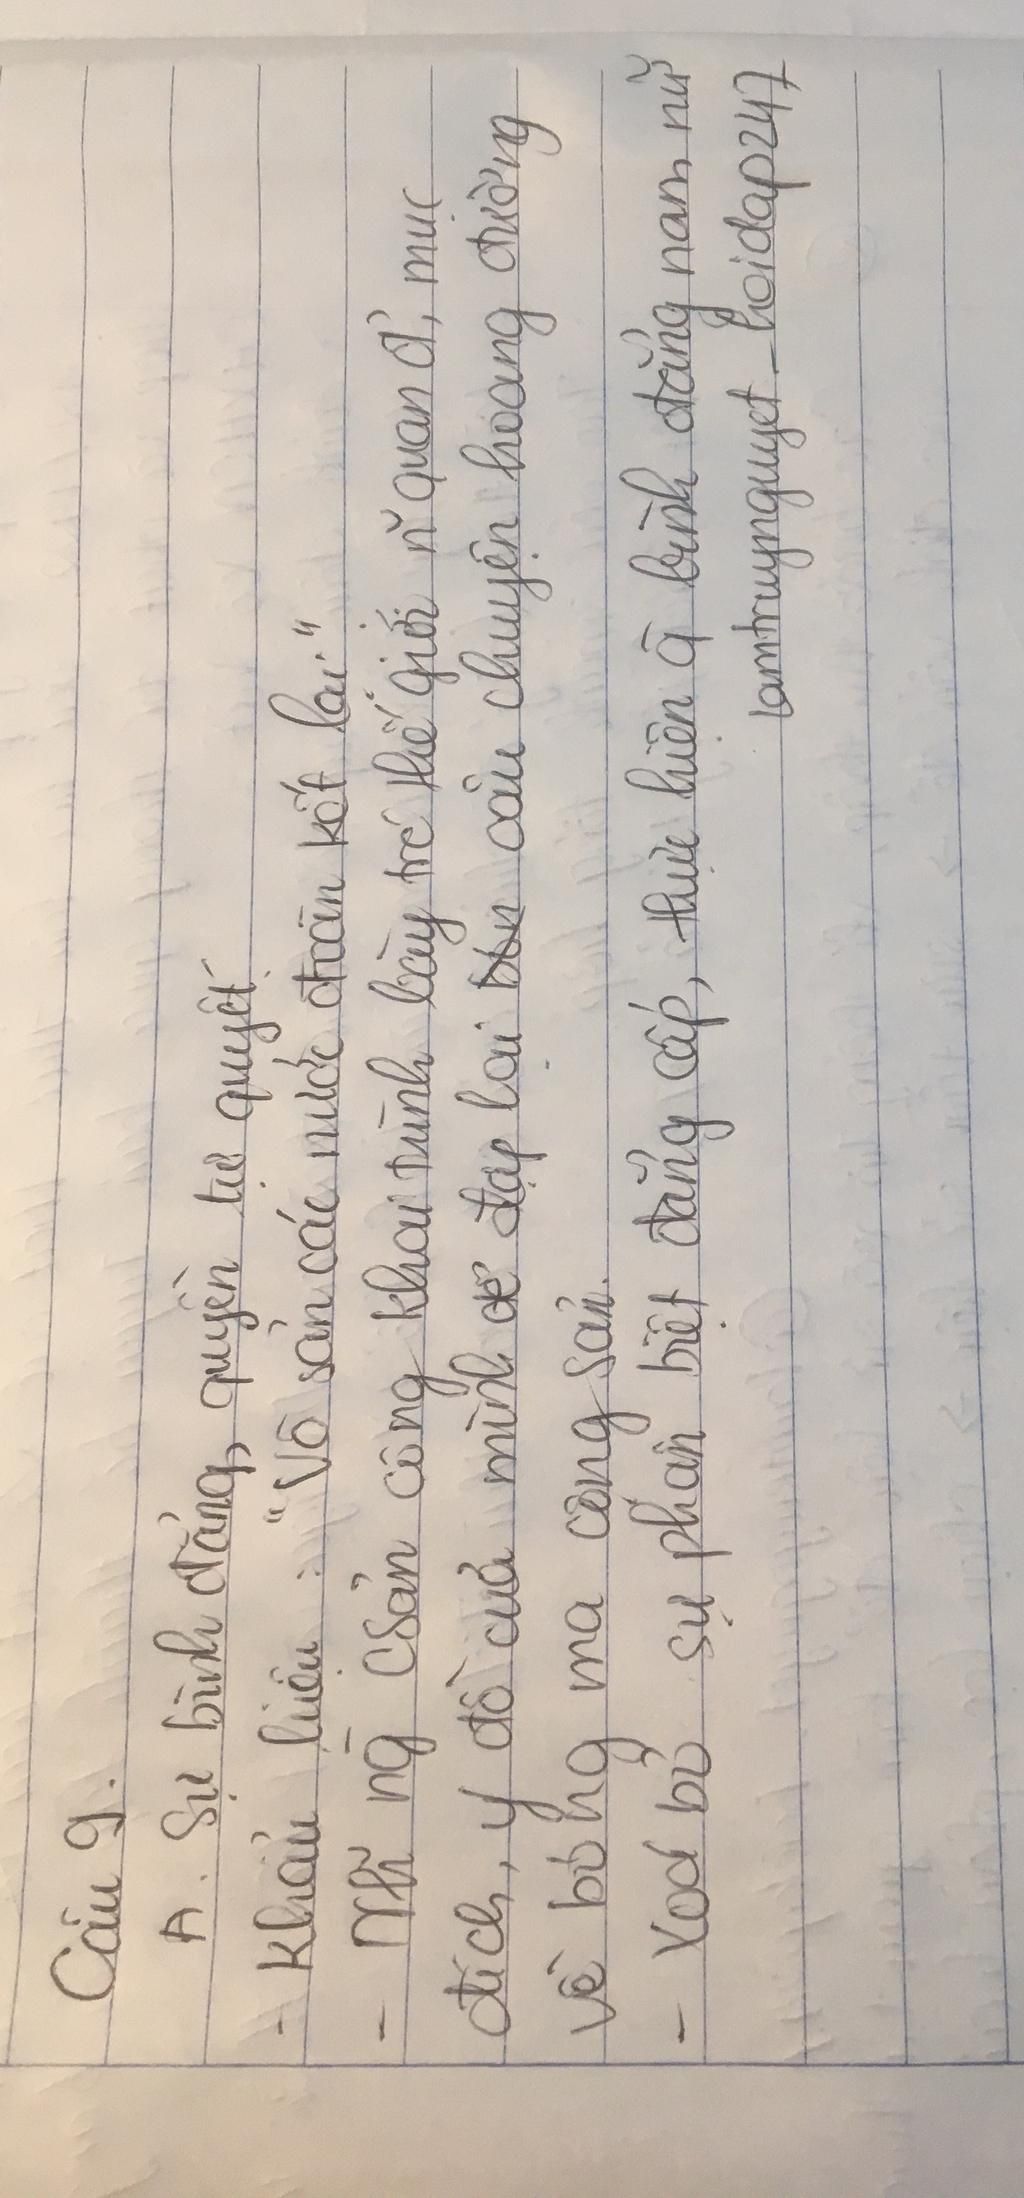 Câu 9.
A. Sự bình đẳng, quyền tự quyết.
- Khẩu hiệu : "Vô sản các nước đoàn kết lại."
- Nh~ ng~ Csản công khai trình bày trc thế giới n~ quan đ', mục
đích, ý đồ của mình để đập lại câu chuyện hoang đường
về bóng ma công sản.
- Xoá bỏ sự phân biệt đẳng cấp, thực hiện q~ bình đẳng nam nữ
lamtruynguyet_hoidap247